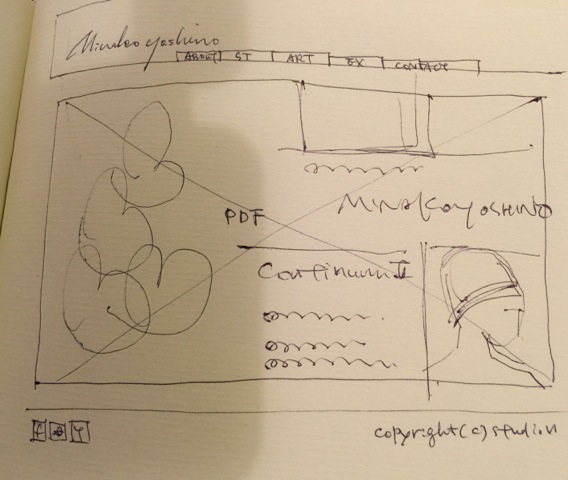 Minakoyoshino
ABOUT ST ART EX CONTACT
PDF
MINAKOYOSHINO
Continuum II
copyright(c)studion